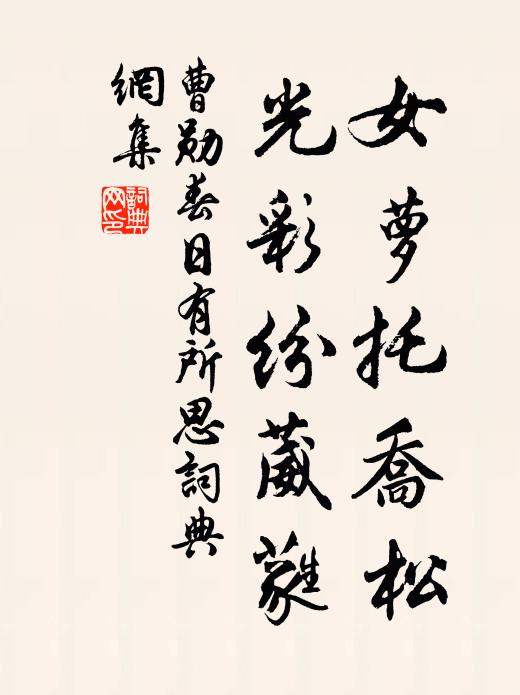 女萝托喬松
光彩纷葳蕤
曹勛春日有所思詞典
網集
詞典网印